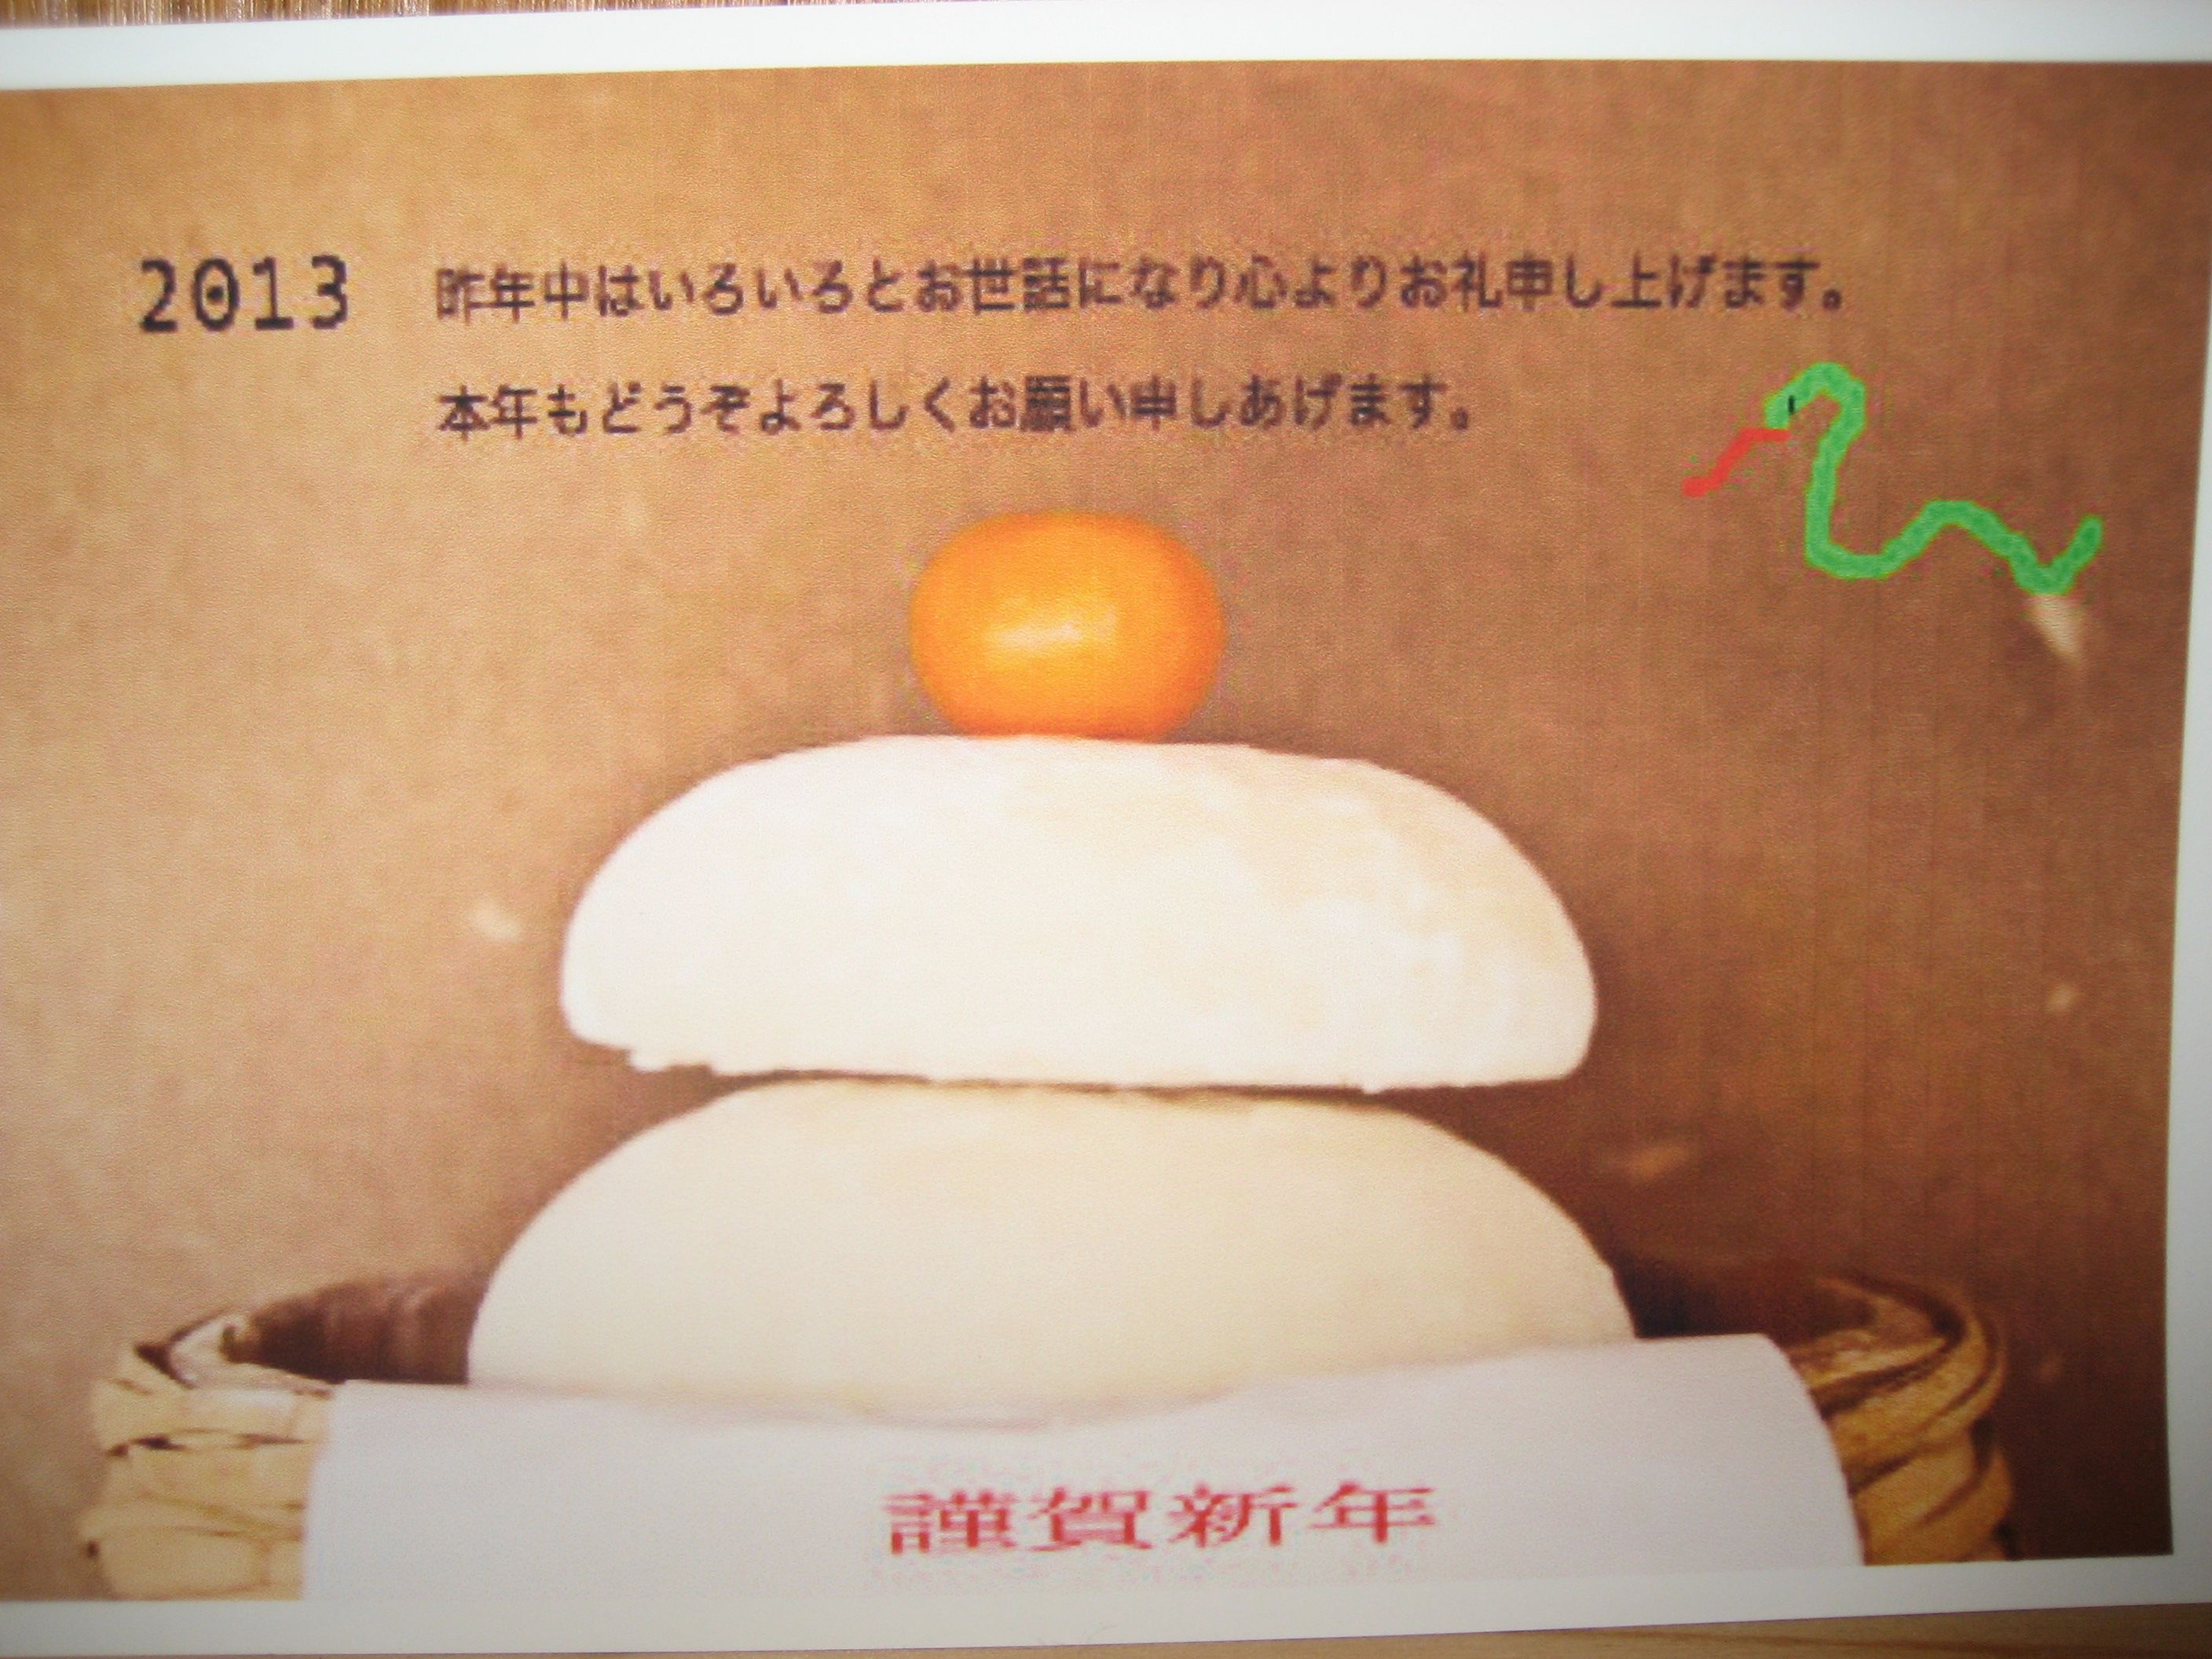 2013 昨年中はいろいろとお世話になり心よりお礼申し上げます。
本年もどうぞよろしくお願い申しあげます。
謹賀新年